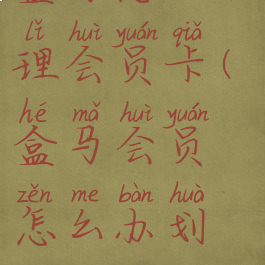 lǐ huì yuán qiǎ
理会员卡(
hé mǎ huì yuán
盒马会员
zěn me bàn huà
怎么办划